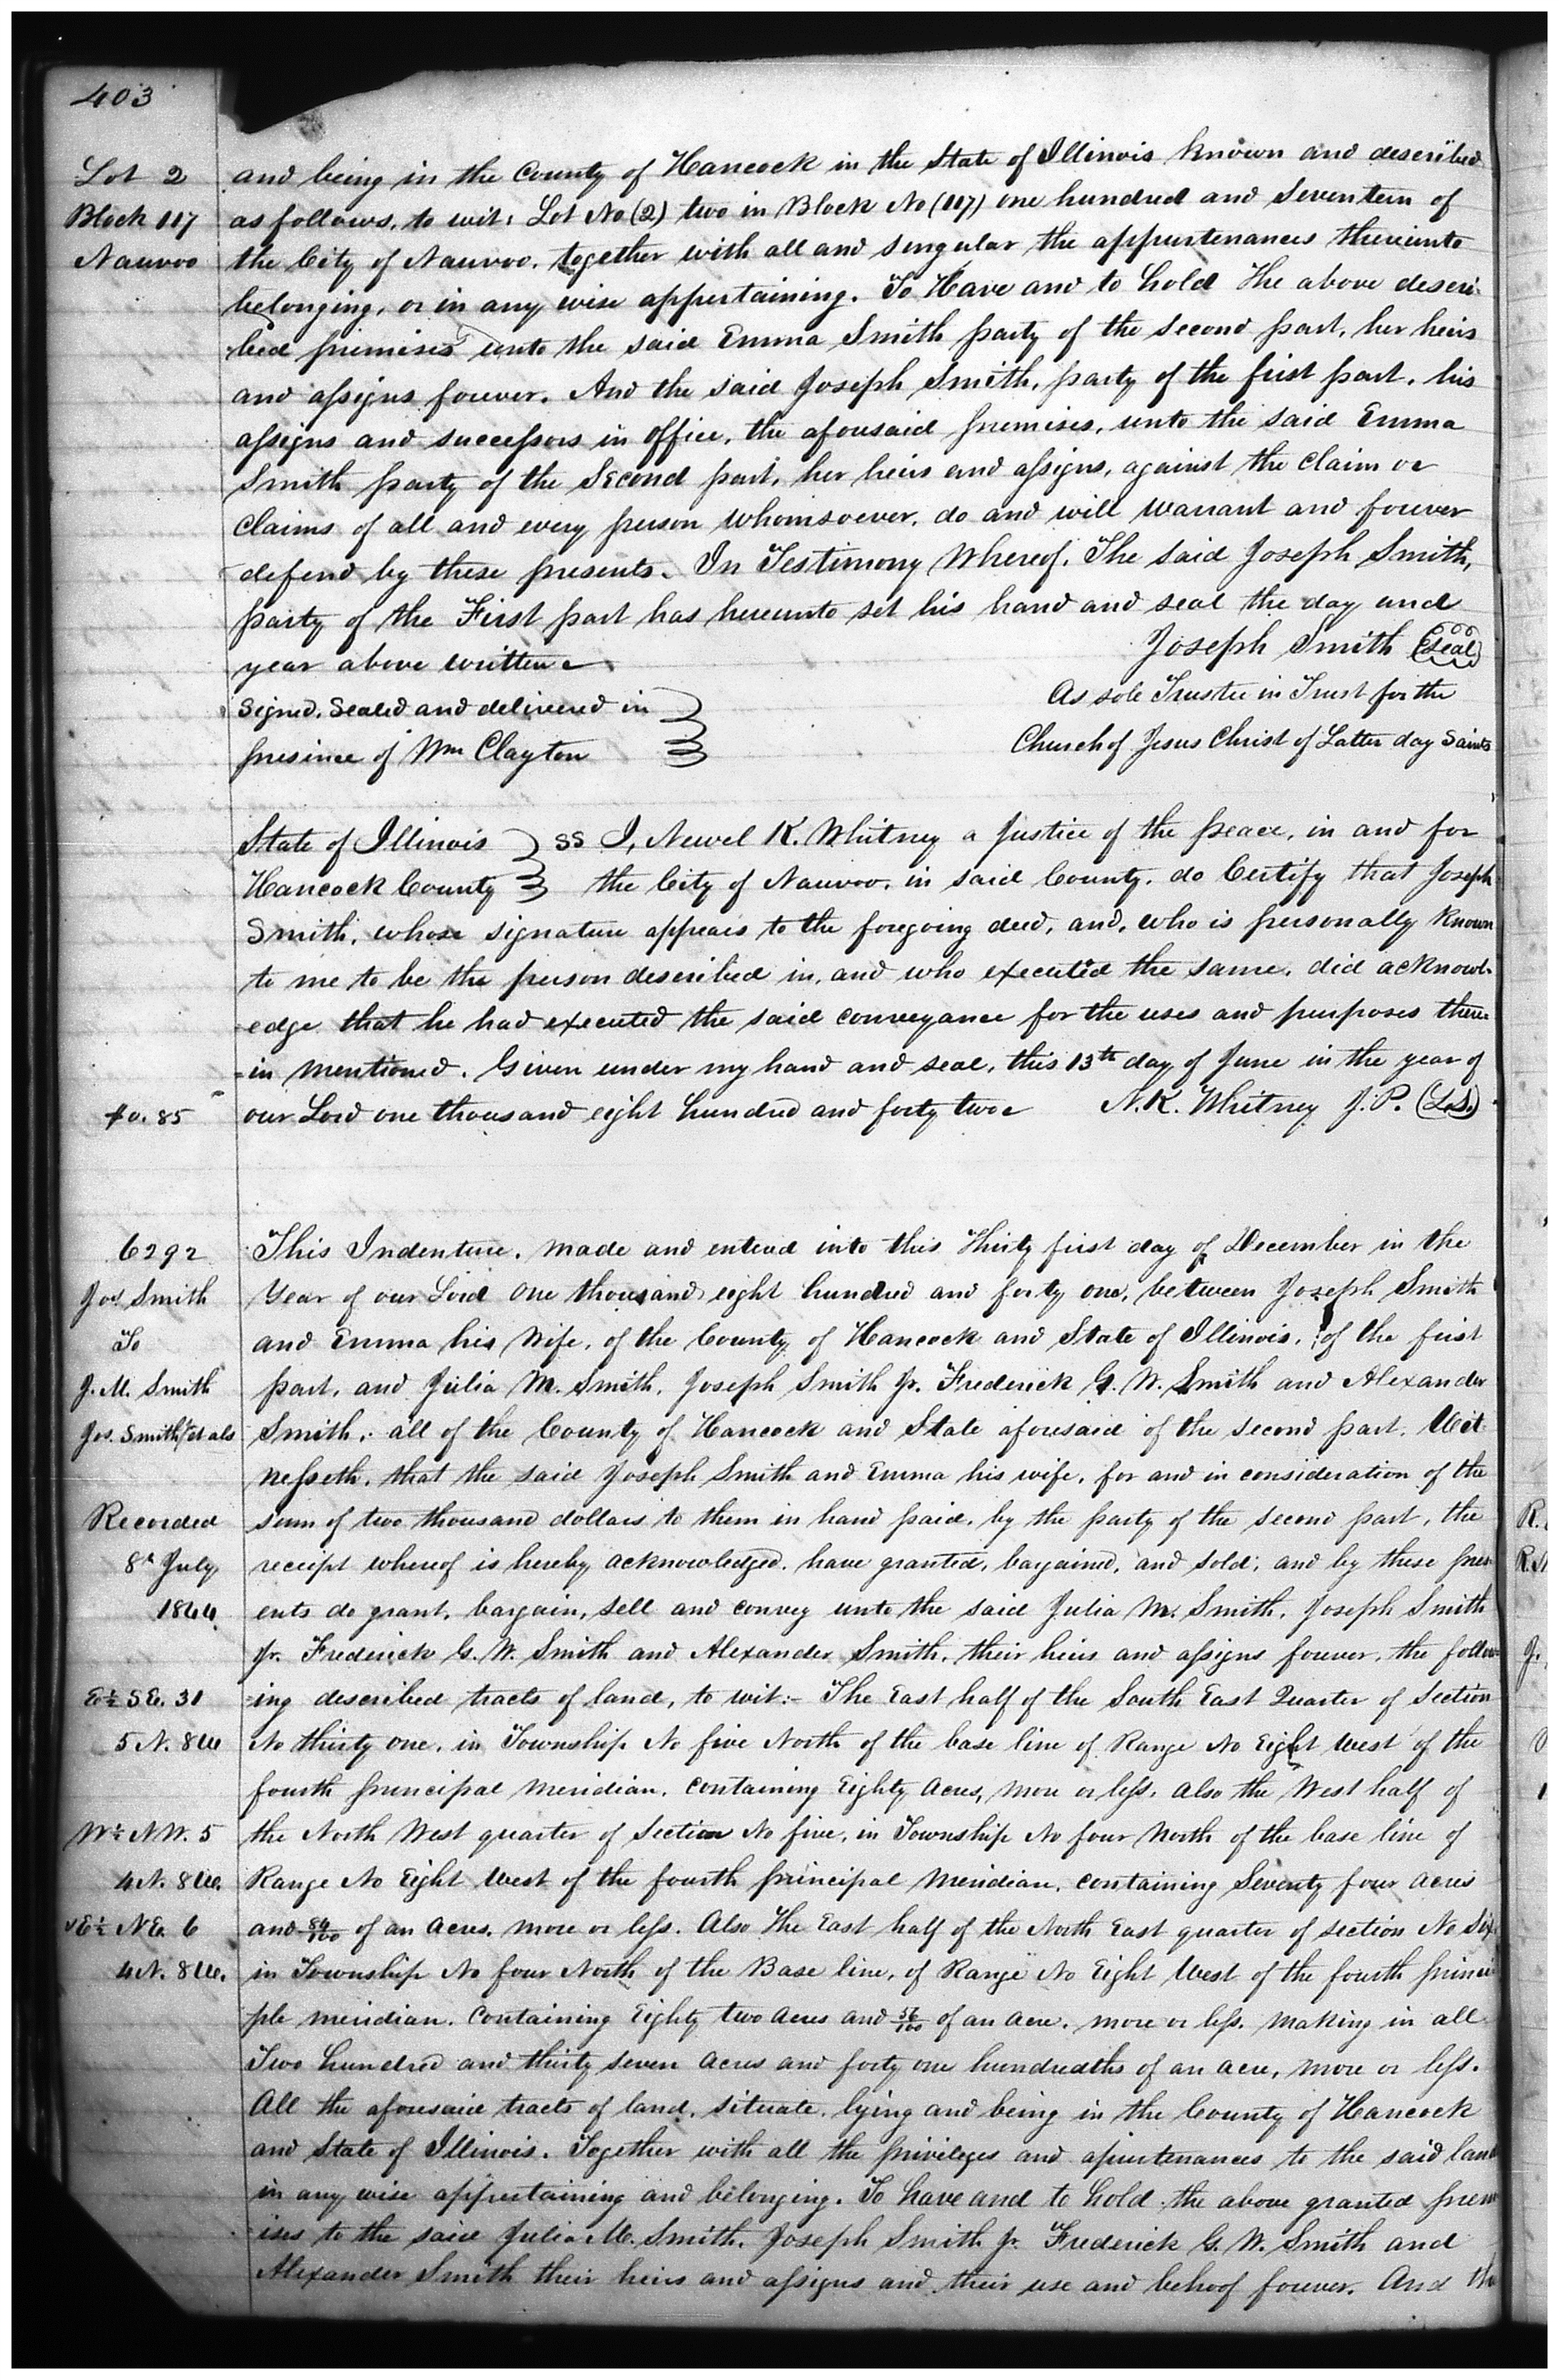 403
Lot 2
Block 117
Nauvoo
and being in the County of Hancock in the State of Illinois Known and described
as follows, to wit: Lot No (2) two in Block No (117) one hundred and Seventeen of
the City of Nauvoo, together with all and singular the appurtenances thereunto
belonging, or in any wise appertaining. To Have and to hold The above descri-
bed premises unto the said Emma Smith party of the second part, her heirs
and assigns forever. And the said Joseph Smith, party of the first part, his
assigns and successors in office, the aforesaid premises, unto the said Emma
Smith party of the Second part, her heirs and assigns, against the claim or
Claims of all and every person whomsoever, do and will warrant and forever
defend by these presents. In Testimony Whereof, The said Joseph Smith,
party of the First part has hereunto set his hand and seal the day and
year above written
Joseph Smith (Seal)
Signed, Sealed and delivered in
As sole Trustee in Trust for the
presince of Wm Clayton
Church of Jesus Christ of Latter day Saints
State of Illinois } SS I, Newel K. Whitney a Justice of the peace, in and for
Hancock County } the City of Nauvoo, in said County, do Certify that Joseph
Smith, whose signature appears to the foregoing deed, and, who is personally Known
to me to be the person described in, and who executed the same, did acknowl-
edge that he had executed the said conveyance for the uses and purposes there-
-in mentioned. Given under my hand and seal, this 13th day of June in the year of
our Lord one thousand eight hundred and forty two N. K. Whitney J. P. (L.S.)
$0.85
6292
Jos Smith
To
J. M. Smith
Jos. Smith Jr et als
Recorded
8th July
1844
This Indenture, made and entered into this Thirty first day of December in the
Year of our Lord One thousand eight hundred and forty one, between Joseph Smith
and Emma his Wife, of the County of Hancock and State of Illinois, of the first
part, and Julia M. Smith, Joseph Smith Jr. Frederick G. W. Smith and Alexander
Smith, all of the County of Hancock and State aforesaid of the second part. Wit
nesseth, that the said Joseph Smith and Emma his wife, for and in consideration of the
sum of two thousand dollars to them in hand paid, by the party of the second part, the
receipt whereof is hereby acknowledged, have granted, bargained, and sold, and by these pres-
ents do grant, bargain, sell and convey unto the said Julia M. Smith, Joseph Smith
Jr. Frederick G. W. Smith and Alexander Smith, their heirs and assigns forever, the follow-
E½ SE. 31
-ing described tracts of land, to wit:- The East half of the South East Quarter of Section
5 N. 8 W
No thirty one, in Township No five North of the base line of Range No Eight West of the
fourth principal Meridian, containing Eighty Acres, more or less. Also the West half of
W½ NW. 5
the North West quarter of Section No five, in Township No four North of the base line of
4 N. 8 W.
Range No Eight West of the fourth principal Meridian, containing Seventy four acres
E½ NE. 6
and 84/100 of an acres, more or less. Also The East half of the North East quarter of section No Six
4 N. 8 W.
in Township No four North of the Base line, of Range No Eight West of the fourth princi
ple meridian, Containing Eighty two acres and 56/100 of an acre, more or less. Making in all
Two hundred and thirty seven acres and forty one hundredths of an acre, more or less.
All the aforesaid tracts of land, situate, lying and being in the County of Hancock
and State of Illinois. Together with all the privileges and apurtenances to the said land
in any wise appertaining and belonging. To have and to hold the above granted prem
ises to the said Julia M. Smith, Joseph Smith Jr. Frederick G. W. Smith and
Alexander Smith their heirs and assigns and their use and behoof forever. And the